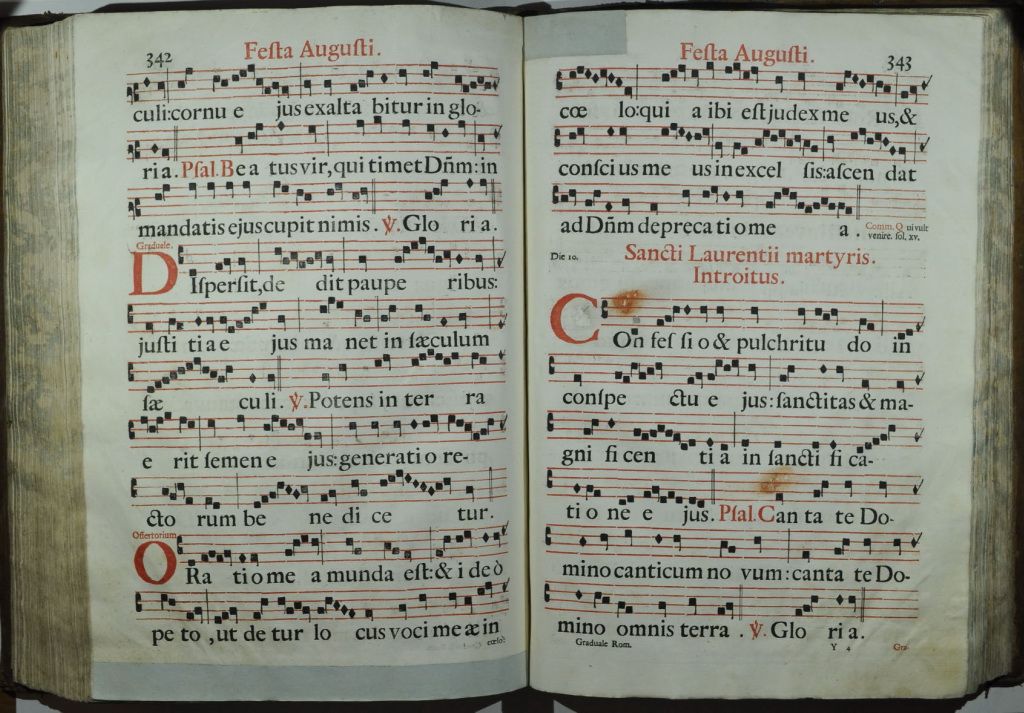 342
Feſta Auguſti.
culi:cornu e jus exalta bitur in glo-
ri a. Pſal. Be a tus vir, qui timet Dñm: in
mandatis ejus cupit nimis. ℣. Glo ri a.
Graduale.
DIſperſit, de dit paupe ribus:
juſti ti a e jus ma net in ſæculum
ſæ cu li. ℣. Potens in ter ra
e rit ſemen e jus: generati o re-
cto rum be ne di ce tur.
Offertorium
ORa ti o me a munda eſt: & i de ò
pe to , ut de tur lo cus voci me æ in
cœlo:
Feſta Auguſti.
343
cœ lo: qui a ibi eſt judex me us, &
conſci us me us in excel ſis: aſcen dat
ad Dñm depreca ti o me a.
Comm. Q ui vult
venire. fol. xv.
Die 10.
Sancti Laurentii martyris.
Introitus.
COn feſ ſi o & pulchritu do in
conſpe ctu e jus: ſanctitas & ma-
gni fi cen ti a in ſancti fi ca-
ti o ne e jus. Pſal. Can ta te Do-
mino canticum no vum: canta te Do-
mino omnis terra . ℣. Glo ri a.
Graduale Rom.
Y 4
Gra-